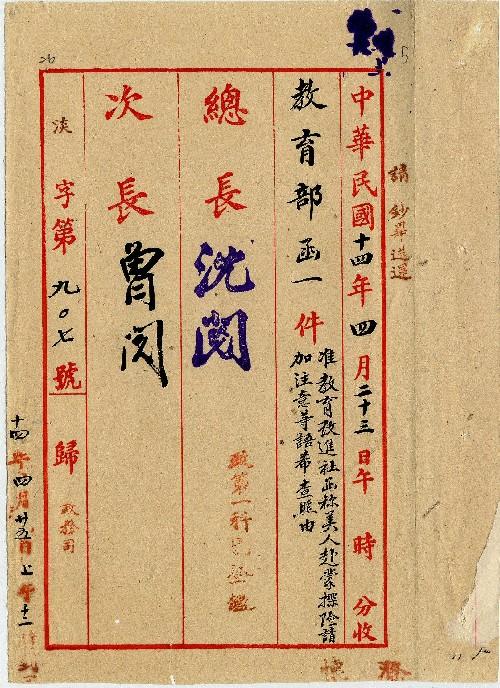 請鈔畢送還
中華民國十四年四月二十三日午 時 分收
教育部函一件
准教育改進社函称美人赴蒙探險請
加注意等語希查照由
總長 沈閱
次長 曾閱
政第一科
字第九〇七號 歸
政務司
十四年四月廿五日上午十二時